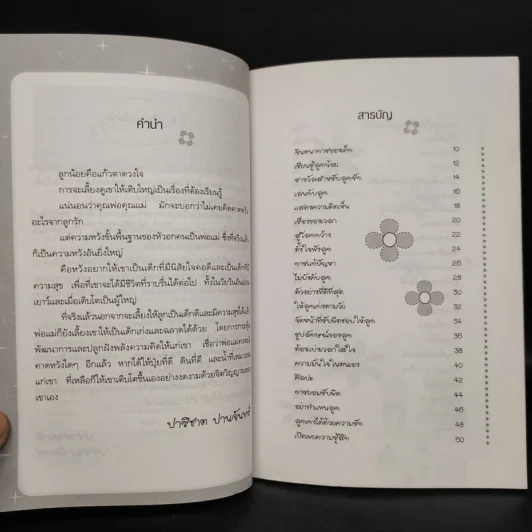 คำนำ
ลูกน้อยคือแก้วตาดวงใจ
การจะเลี้ยงดูเขาให้เติบใหญ่เป็นเรื่องที่ต้องเรียนรู้
แน่นอนว่าคุณพ่อคุณแม่ มักจะบอกว่าไม่เคยคิดคาดหวัง
อะไรจากลูกรัก
แต่ความหวังขั้นพื้นฐานของหัวอกคนเป็นพ่อแม่ ซึ่งที่จริงแล้ว
ก็เป็นความหวังอันยิ่งใหญ่
คือหวังอยากให้เขาเป็นเด็กที่มีนิสัยใจคอดีและเป็นเด็กที่มี
ความสุข เพื่อที่เขาจะได้มีชีวิตที่ราบรื่นได้ต่อไป ทั้งในวัยในวันอ่อน
เยาว์และเมื่อเติบโตเป็นผู้ใหญ่
ที่จริงแล้วนอกจากจะเลี้ยงให้ลูกเป็นเด็กดีและมีความสุขได้แล้ว
พ่อแม่ก็ยังเลี้ยงเขาให้เป็นเด็กเก่งและฉลาดได้ด้วย โดยการกระตุ้น
พัฒนาการและปลูกฝังพลังความคิดให้แก่เขา เชื่อว่าพ่อแม่คงจะไม่
คาดหวังใดๆ อีกแล้ว หากได้ให้ปุ๋ยที่ดี ดินที่ดี และน้ำที่เหมาะสม
แก่เขา ที่เหลือก็ให้เขาเติบโตขึ้นเองอย่างงดงามด้วยจิตวิญญาณของ
เขาเอง
ปาริชาต ปานจันทร์
สารบัญ
จินตนาการของเด็ก 10
เรียนรู้ลูกน้อย 12
รางวัลสำหรับลูกรัก 14
เล่นกับลูก 16
แสดงความคิดเห็น 18
เรื่องของเวลา 20
สู่โลกกว้าง 22
ตั้งใจฟังลูก 24
การแก้ปัญหา 26
ไม่บังคับลูก 28
ตัวอย่างที่ดีที่สุด 30
ให้ลูกเก่งตามวัย 32
จัดหน้าที่รับผิดชอบให้ลูก 34
รูปลักษณ์ของลูก 36
ต้องแบ่งเวลาใส่ใจ 38
ความมั่นใจในตนเอง 40
ศิลปะ 42
การยอมรับผิด 44
อย่าทำแทนลูก 46
ลูกเก่งได้ด้วยความรัก 48
เปิดเผยความรู้สึก 50